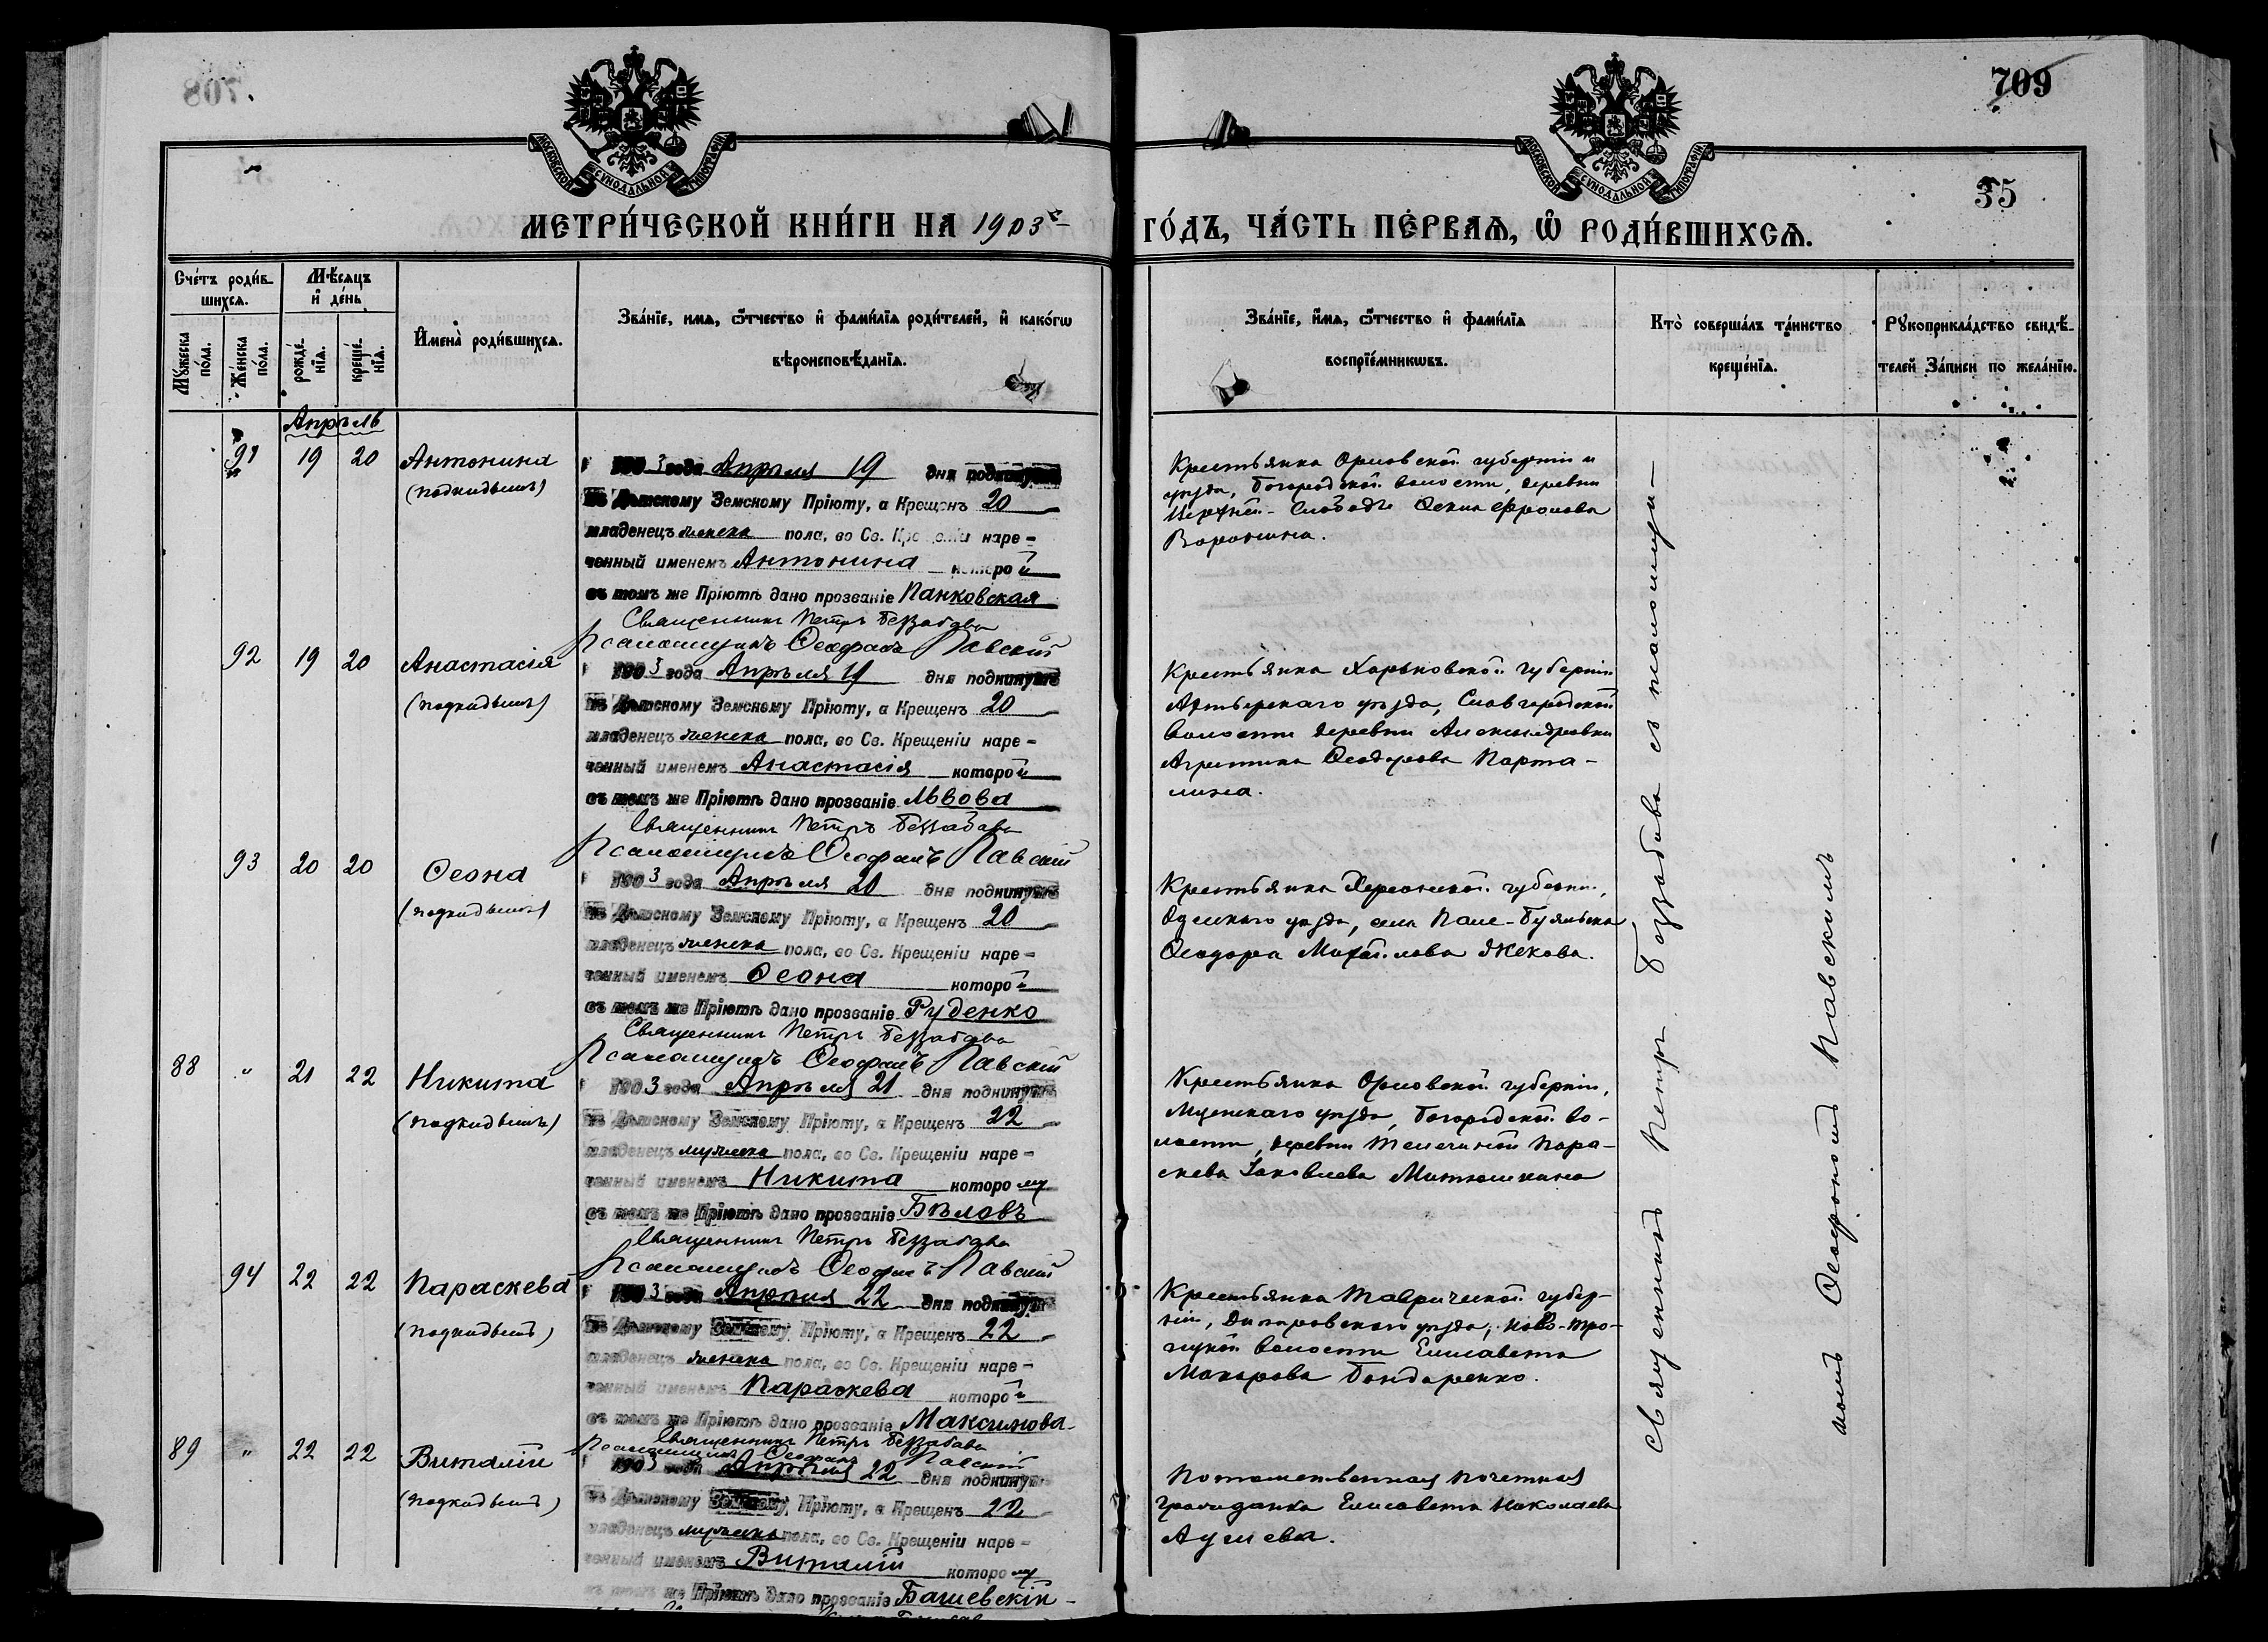 708
709
МОСКОВСКОЙ СѴНОДАЛЬНОЙ ТИПОГРАФІИ
МОСКОВСКОЙ СѴНОДАЛЬНОЙ ТИПОГРАФІИ
35
МЕТРИ́ЧЕСКОЙ КНИ́ГИ НА 1903 г ГО́ДЪ, ЧА́СТЬ ПЕ́РВАѦ, Ѽ РОДИ́ВШИХСѦ.
Сче́тъ роди́в-
шихсѧ.
Мѣ́сѧцъ
и҆ де́нь
Мꙋ́жеска
по́ла.
Же́нска
по́ла.
рожде́-
нїѧ.
креще́-
нїѧ.
И҆мена̀ роди́вшихсѧ.
Зва́нїе, имѧ, ѻ҆́тчество и҆ фами́лїѧ роди́телей, и҆ како́гѡ
вѣроисповѣ́данїѧ.
Зва́нїе, и҆́мѧ, ѻ҆́тчество и҆ фами́лїѧ
воспрїе́мникѡвъ.
Кто̀ соверша́лъ та́инство
креще́нїѧ.
Рꙋкоприкла́дство свидѣ́-
телей За́писи по жела́нїю.
Апрѣль
91 19 20 Антонина
(подкидышъ)
1903 года Апрѣля 19 дня подкинутъ
къ Дѣтскому Земскому Пріюту, а Крещенъ 20
младенецъ женска пола, во Св. Крещеніи наре-
ченный именемъ Антонина которой
въ томъ же Пріютѣ дано прозваніе Панковская
Священникъ Петръ Беззабава
Псаломщикъ Ѳеофанъ Павскій
Крестьянка Орловской губерніи и
уѣзда, Богородской волости, деревни
Слободы Ѳекла Фролова
Воронина.
92 19 20 Анастасія
(подкидышъ)
1903 года Апрѣля 19 дня подкинутъ
къ Дѣтскому Земскому Пріюту, а Крещенъ 20
младенецъ женска пола, во Св. Крещеніи наре-
ченный именемъ Анастасія которой
въ томъ же Пріютѣ дано прозваніе Львова
Священникъ Петръ Беззабава
Псаломщикъ Ѳеофанъ Павскій
Крестьянка Харьковской губерніи
Ахтырскаго уѣзда, Славгородской
волости деревни Александровки
Агрипина Ѳеодорова Парта-
лина.
93 20 20 Ѳеона
(подкидышъ)
1903 года Апрѣля 20 дня подкинутъ
къ Дѣтскому Земскому Пріюту, а Крещенъ 20
младенецъ женска пола, во Св. Крещеніи наре-
ченный именемъ Ѳеона которой
въ томъ же Пріютѣ дано прозваніе Руденко
Священникъ Петръ Беззабава
Псаломщикъ Ѳеофанъ Павскій
Крестьянка Херсонской губерніи,
Одесскаго уѣзда, села
Ѳеодора Михайлова Жекова.
88 " 21 22 Никита
(подкидышъ)
1903 года Апрѣля 21 дня подкинутъ
къ Дѣтскому Земскому Пріюту, а Крещенъ 22
младенецъ мужеска пола, во Св. Крещеніи наре-
ченный именемъ Никита которому
въ томъ же Пріютѣ дано прозваніе Бѣловъ
Священникъ Петръ Беззабава
Псаломщикъ Ѳеофанъ Павскій
Крестьянка Орловской губерніи,
Мценскаго уѣзда, Богородской во-
лости, деревни Телегиной Пара-
скева Іаковлева Митюшкина
94 22 22 Параскева
(подкидышъ)
1903 года Апрѣля 22 дня подкинутъ
къ Дѣтскому Земскому Пріюту, а Крещенъ 22
младенецъ женска пола, во Св. Крещеніи наре-
ченный именемъ Параскева которой
въ томъ же Пріютѣ дано прозваніе Максимова
Священникъ Петръ Беззабава
Псаломщикъ Ѳеофанъ Павскій
Крестьянка Таврической губер-
ніи, Днѣпровскаго уѣзда, Ново-Тро-
ицкой волости Елисавета
Макарова Бондаренко.
89 " 22 22 Виталій
(подкидышъ)
1903 года Апрѣля 22 дня подкинутъ
къ Дѣтскому Земскому Пріюту, а Крещенъ 22
младенецъ мужеска пола, во Св. Крещеніи наре-
ченный именемъ Виталій которому
въ томъ же Пріютѣ дано прозваніе Башевскій
Потомственная почетная
гражданка Елисавета Николаева
Священникъ Петръ Беззабава съ псаломщи-
комъ Ѳеофаномъ Павскимъ